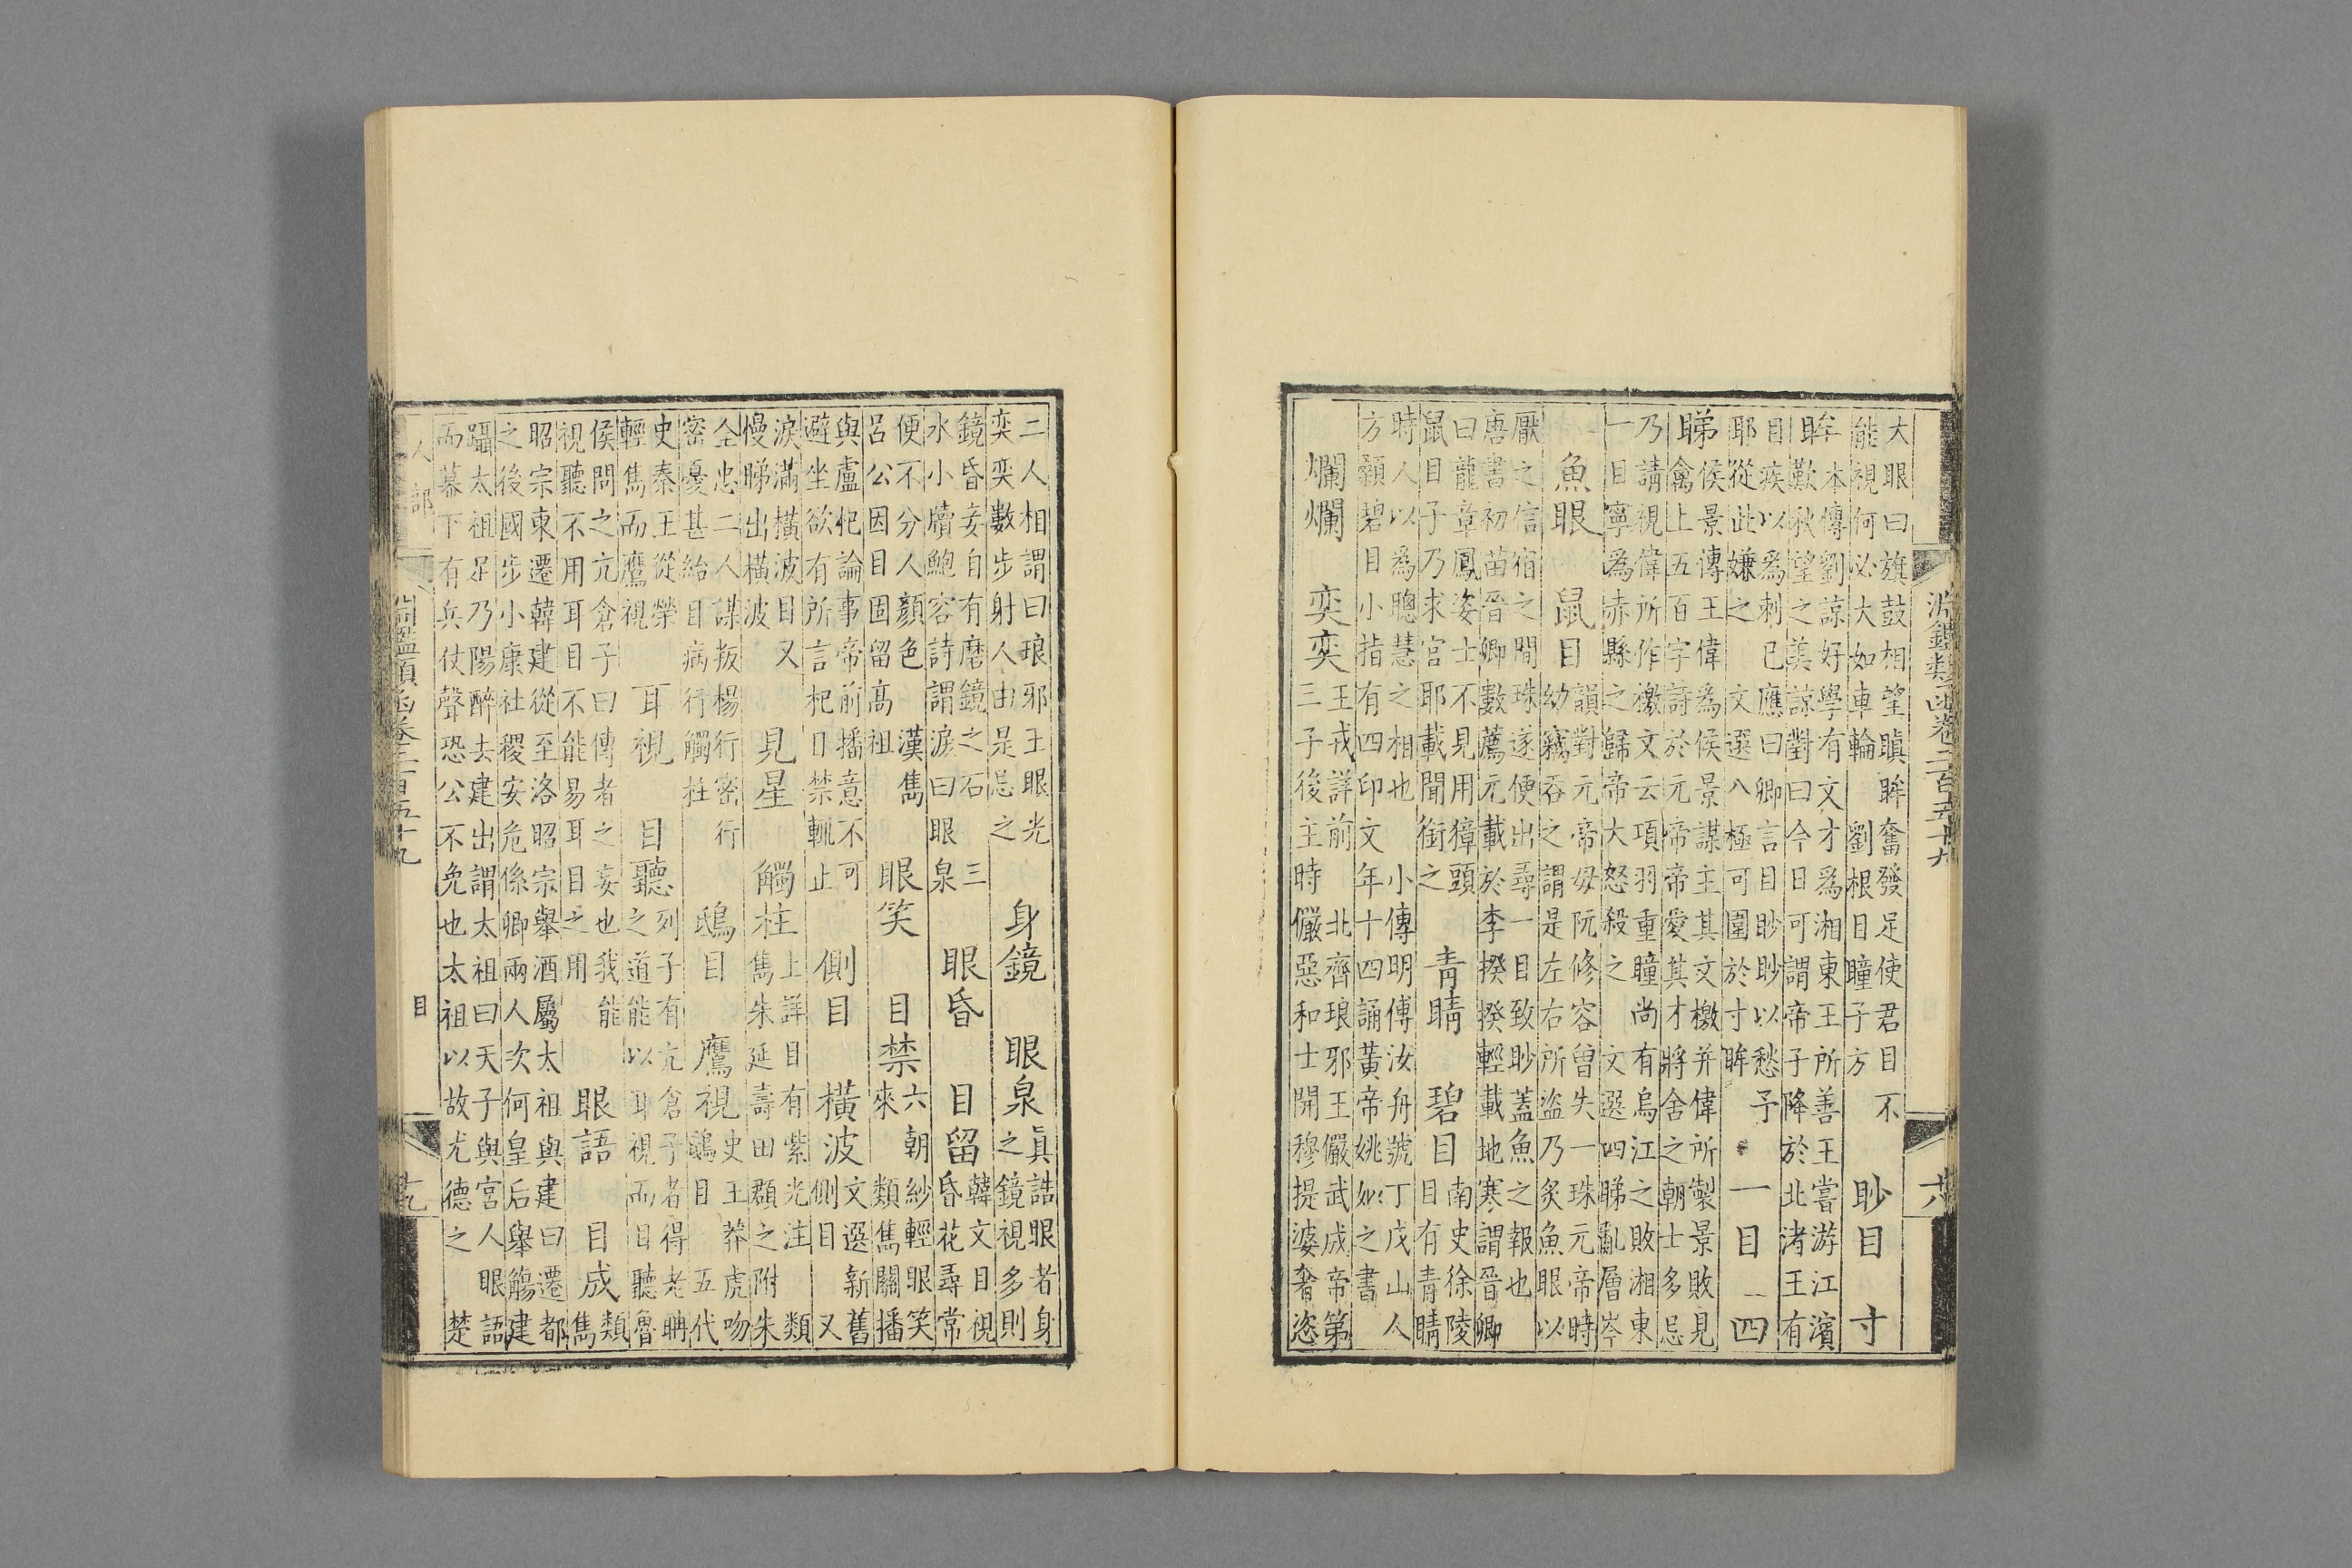 淵鑑類函卷二百五十九
六
大眼曰旗鼓相望瞋眸奮發足使君目不
能視何必大如車輪 劉根目瞳子方
眇目 寸
眸
本傳劉諒好學有文才爲湘東王所善王嘗游江濱
歎秋望之美諒對曰今日可謂帝子降於北渚王有
目疾以爲刺已應曰卿言目眇眇以愁予
耶從此嫌之 文選八極可圍於寸眸
一目 四
睇
侯景傳王偉爲侯景謀主其文檄并偉所製景敗見
禽上五百字詩於元帝帝愛其才將舍之朝士多忌
乃請視偉所作檄文云項羽重瞳尚有烏江之敗湘東
一目寧爲赤縣之歸帝大怒殺之 文選四睇亂層岑
魚眼 鼠目
韻對元帝母阮修容曾失一珠元帝時
幼竊吞之謂是左右所盜乃炙魚眼以
厭之信宿之間珠遂便出尋一目致眇蓋魚之報也
唐書初苗晉卿數薦元載於李揆揆輕載地寒謂晉卿
曰龍章鳳姿士不見用獐頭
鼠目子乃求官耶載聞銜之
青睛 碧目
南史徐陵
目有青睛
時人以爲聰慧之相也 小傳明傅汝舟號丁戊山人
方顙碧目小指有四印文年十四誦黃帝姚姒之書
爛爛 奕奕
王戎詳前 北齊琅邪王儼武成帝第
三子後主時儼惡和士開穆提婆奢恣
二人相謂曰琅邪王眼光
奕奕數步射人由是忌之
身鏡 眼泉
真誥眼者身
之鏡視多則
鏡昏妄自有磨鏡之石 三
水小牘鮑容詩謂淚曰眼泉
眼昏 目留
韓文目視
昏花尋常
便不分人顏色 漢雋
呂公因目固留高祖
眼笑 目禁
六朝紗輕眼笑
來 類雋關播
與盧杞論事帝前播意不可
避坐欲有所言杞目禁輒止
側目 橫波
文選新舊
側目 又
淚滿橫波目又
慢睇出橫波
見星 觸柱
上詳目有紫光注 類
雋朱延壽田頵之附朱
全忠二人謀叛楊行密行
密憂甚紿目病行觸柱
鴟目 鷹視
史王莽虎吻
鴟目 五代
史秦王從榮
輕雋而鷹視
耳視 目聽
列子有亢倉子者得老聃
之道能以耳視而目聽魯
侯問之亢倉子曰傳者之妄也我能
視聽不用耳目不能易耳目之用
眼語 目成
類
雋
昭宗東遷韓建從至洛昭宗舉酒屬太祖與建曰遷都
之後國步小康社稷安危係卿兩人次何皇后舉觴建
躡太祖足乃陽醉去建出謂太祖曰天子與宮人眼語
而幕下有兵仗聲恐公不免也太祖以故尤德之 楚
人部
淵鑑類函卷二百五十九
目